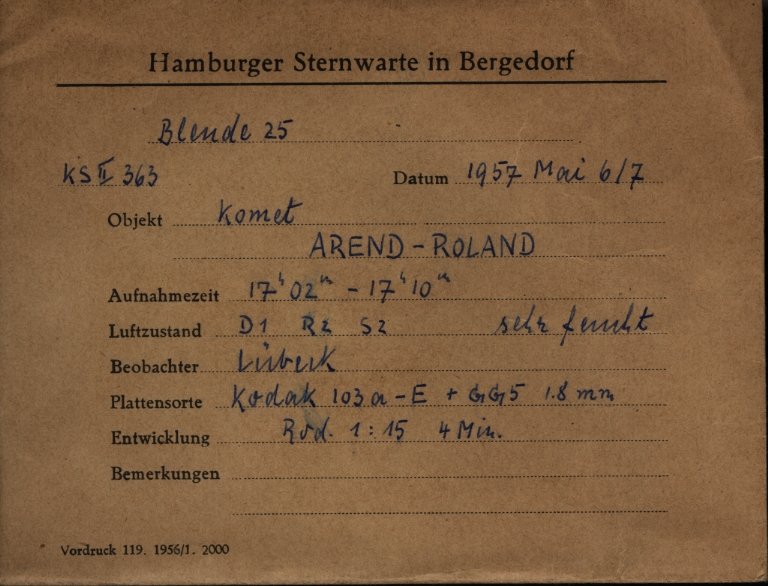 Hamburger Sternwarte in Bergedorf
Blende 25
KS II 363 Datum 1957 Mai 6/7
Objekt Komet
AREND - ROLAND
Aufnahmezeit 17h 02m - 17h 10m
Luftzustand D1 R2 S2 sehr feucht
Beobachter Lübeck
Plattensorte Kodak 103a - E + GG5 1.8 mm
Entwicklung Rod. 1:15 4 Min.
Bemerkungen
Vordruck 119. 1956/1. 2000